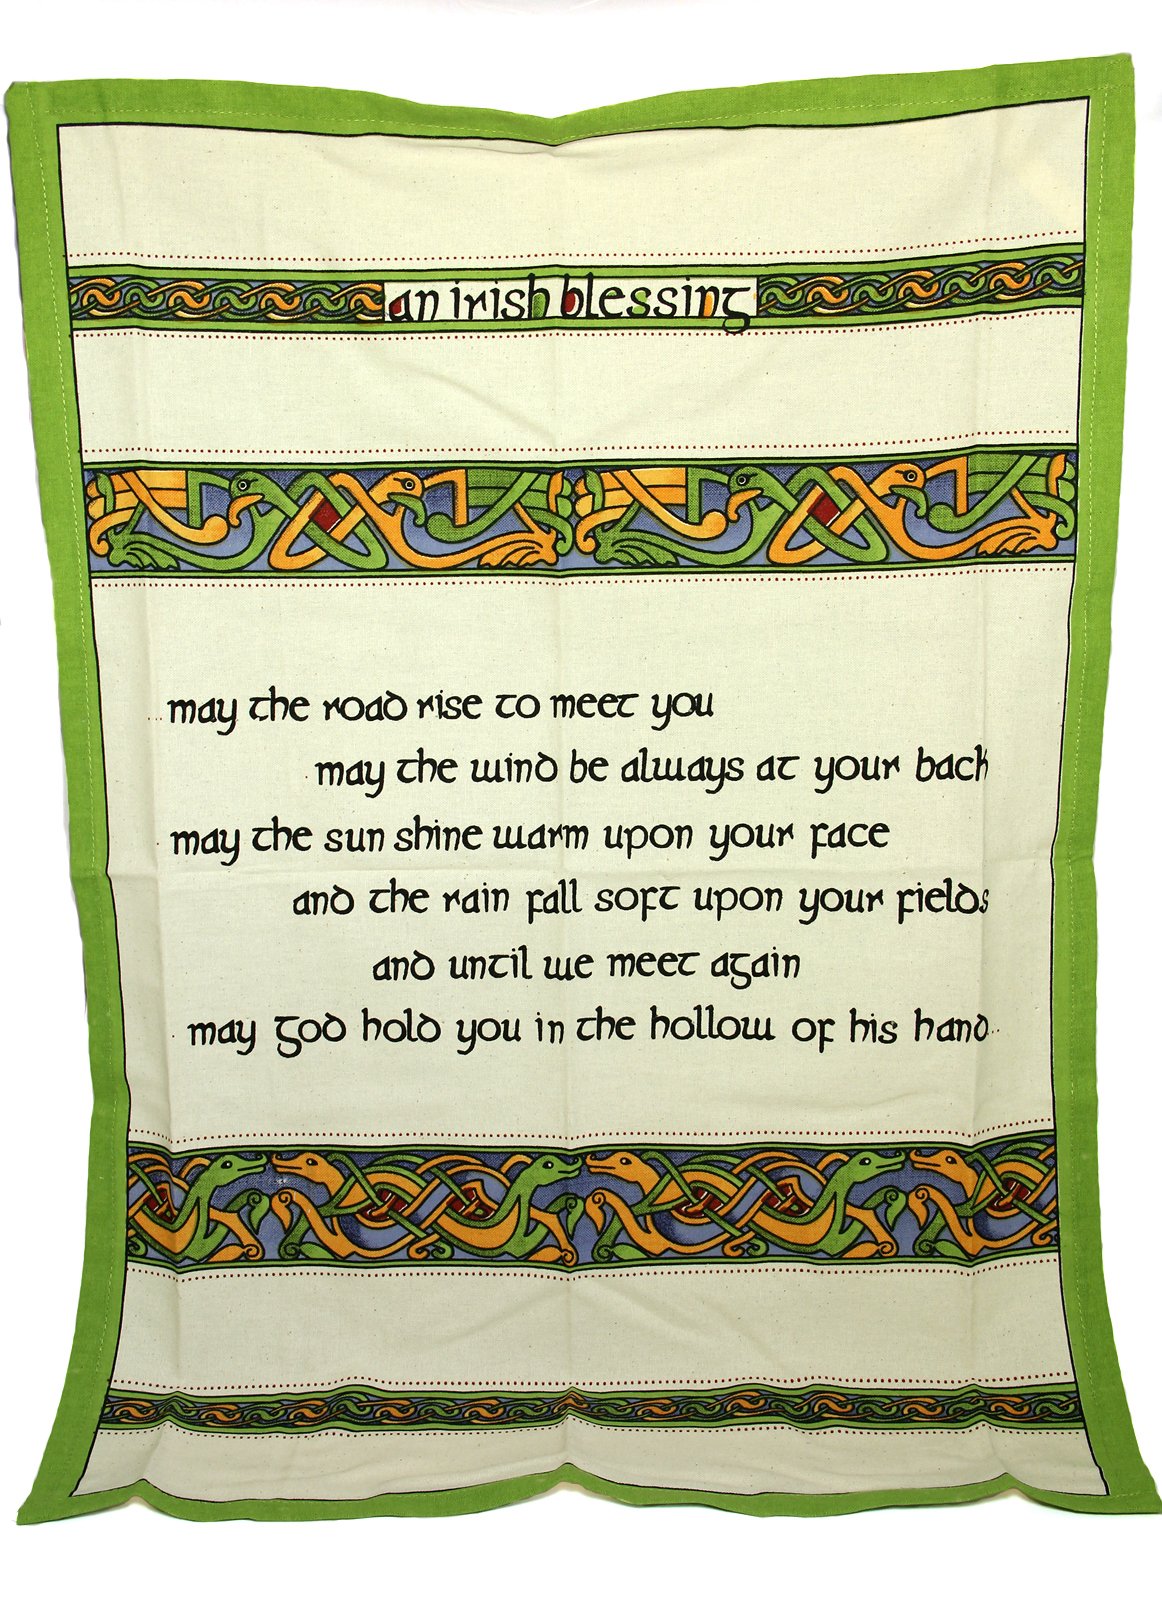 an irish blessing
may the road rise to meet you
may the wind be always at your back
may the sun shine warm upon your face
and the rain fall soft upon your fields
and until we meet again
may god hold you in the hollow of his hand